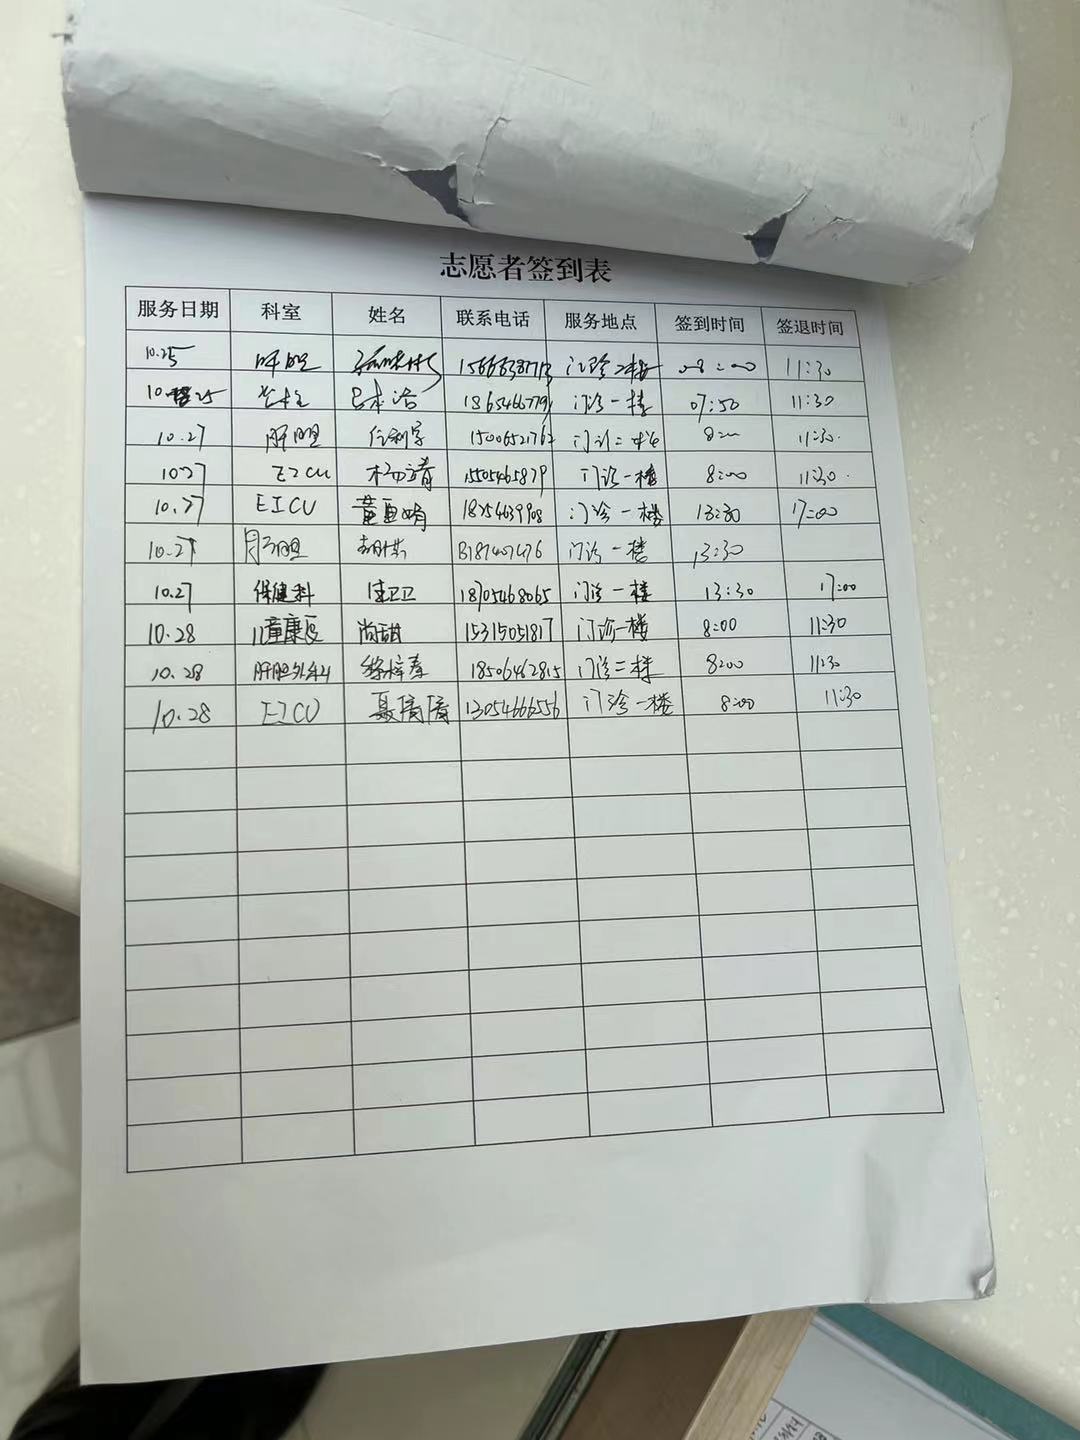 志愿者签到表
服务日期 科室 姓名 联系电话 服务地点 签到时间 签退时间
10.25 肝胆 门诊二楼 08:00 11:30
10. 25 门诊一楼 07:50 11:30
10.27 肝胆 15006521762 门诊二楼 8:00 11:30
10.27 EICU 杨靖 15505465879 门诊一楼 8:00 11:30
10.27 EICU 18754639908 门诊一楼 13:30 17:00
10.27 肝胆 门诊一楼 13:30
10.27 保健科 18705468065 门诊一楼 13:30 17:00
10.28 儿童康复 尚甜 15315051817 门诊一楼 8:00 11:30
10.28 肝胆外科 18506462815 门诊二楼 8:00 11:30
10.28 EICU 聂倩倩 13054666556 门诊一楼 8:00 11:30